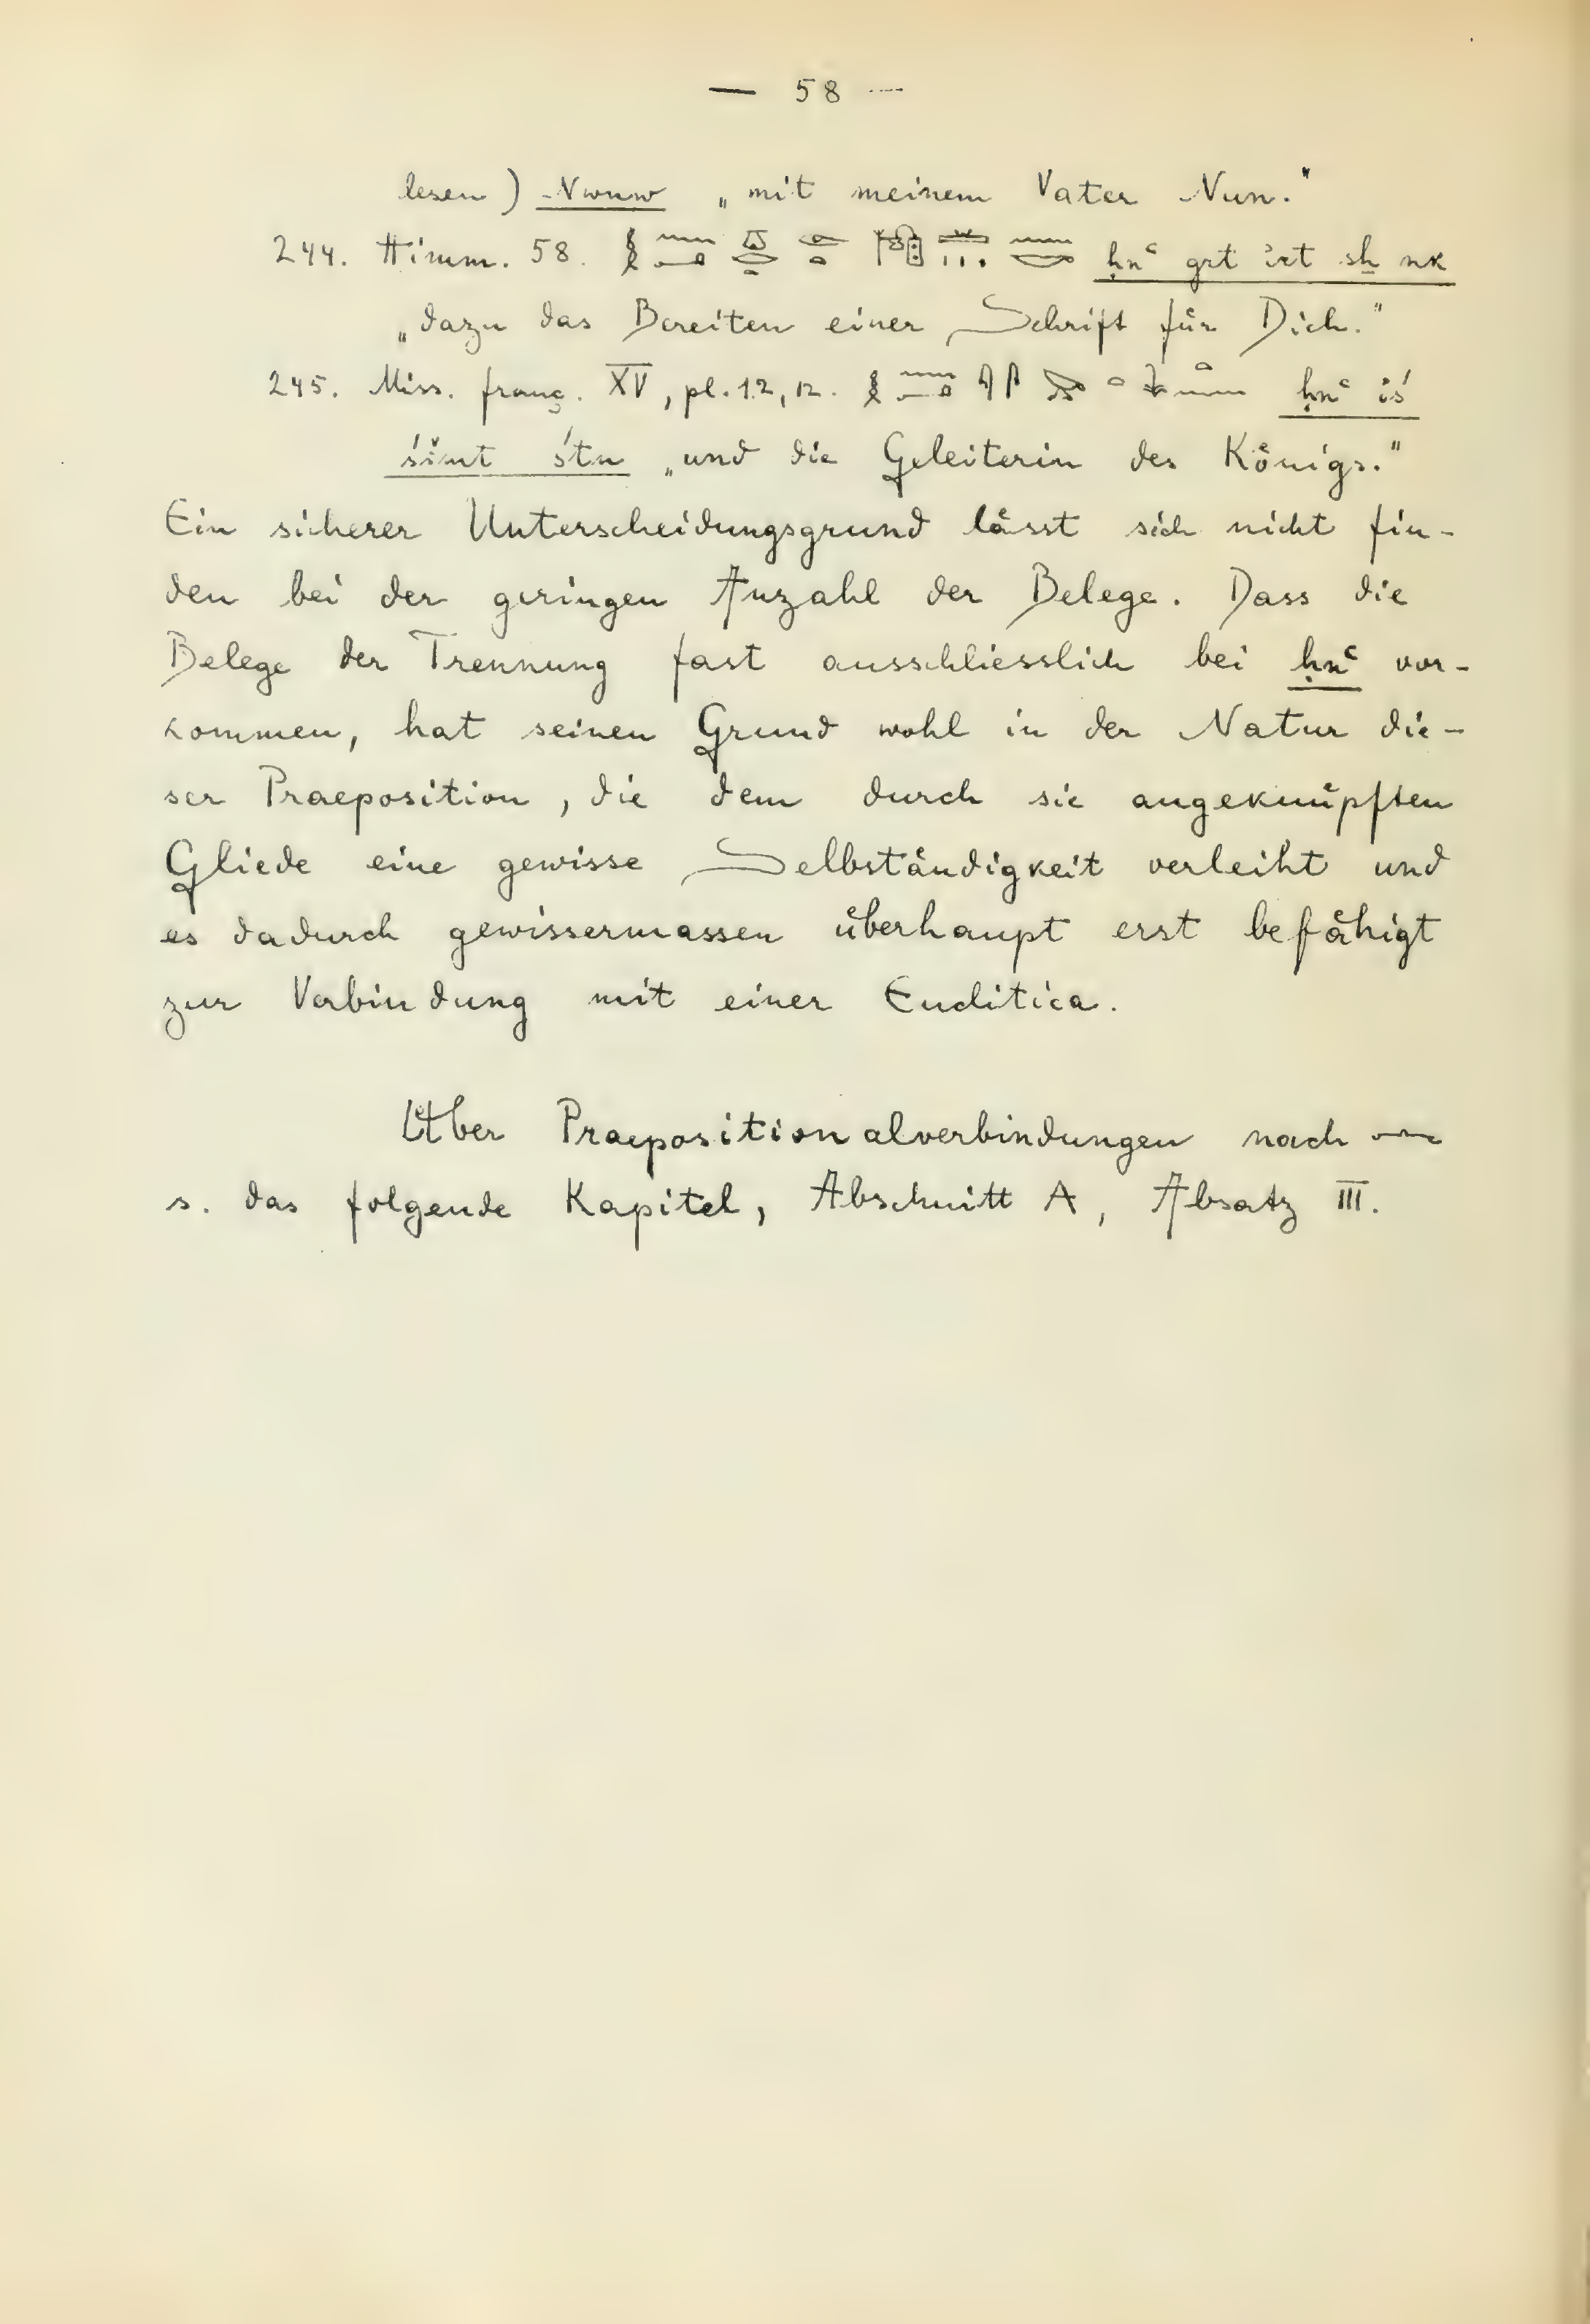 — 58 —
lesen) Nwnw „mit meinem Vater Nun."
244. Himm. 58. ḥnꜥ grt irt sẖ nk
„dazu das Bereiten einer Schrift für Dich."
245. Miss. franç. XV, pl. 12, 12. ḥnꜥ iś
śšmt śtn „und die Geleiterin des Königs."
Ein sicherer Unterscheidungsgrund lässt sich nicht fin-
den bei der geringen Anzahl der Belege. Dass die
Belege der Trennung fast ausschliesslich bei ḥnꜥ vor-
kommen, hat seinen Grund wohl in der Natur die-
ser Praeposition, die dem durch sie angeknüpften
Gliede eine gewisse Selbständigkeit verleiht und
es dadurch gewissermassen überhaupt erst befähigt
zur Verbindung mit einer Enclitica.
Über Praepositionalverbindungen nach
s. das folgende Kapitel, Abschnitt A, Absatz III.